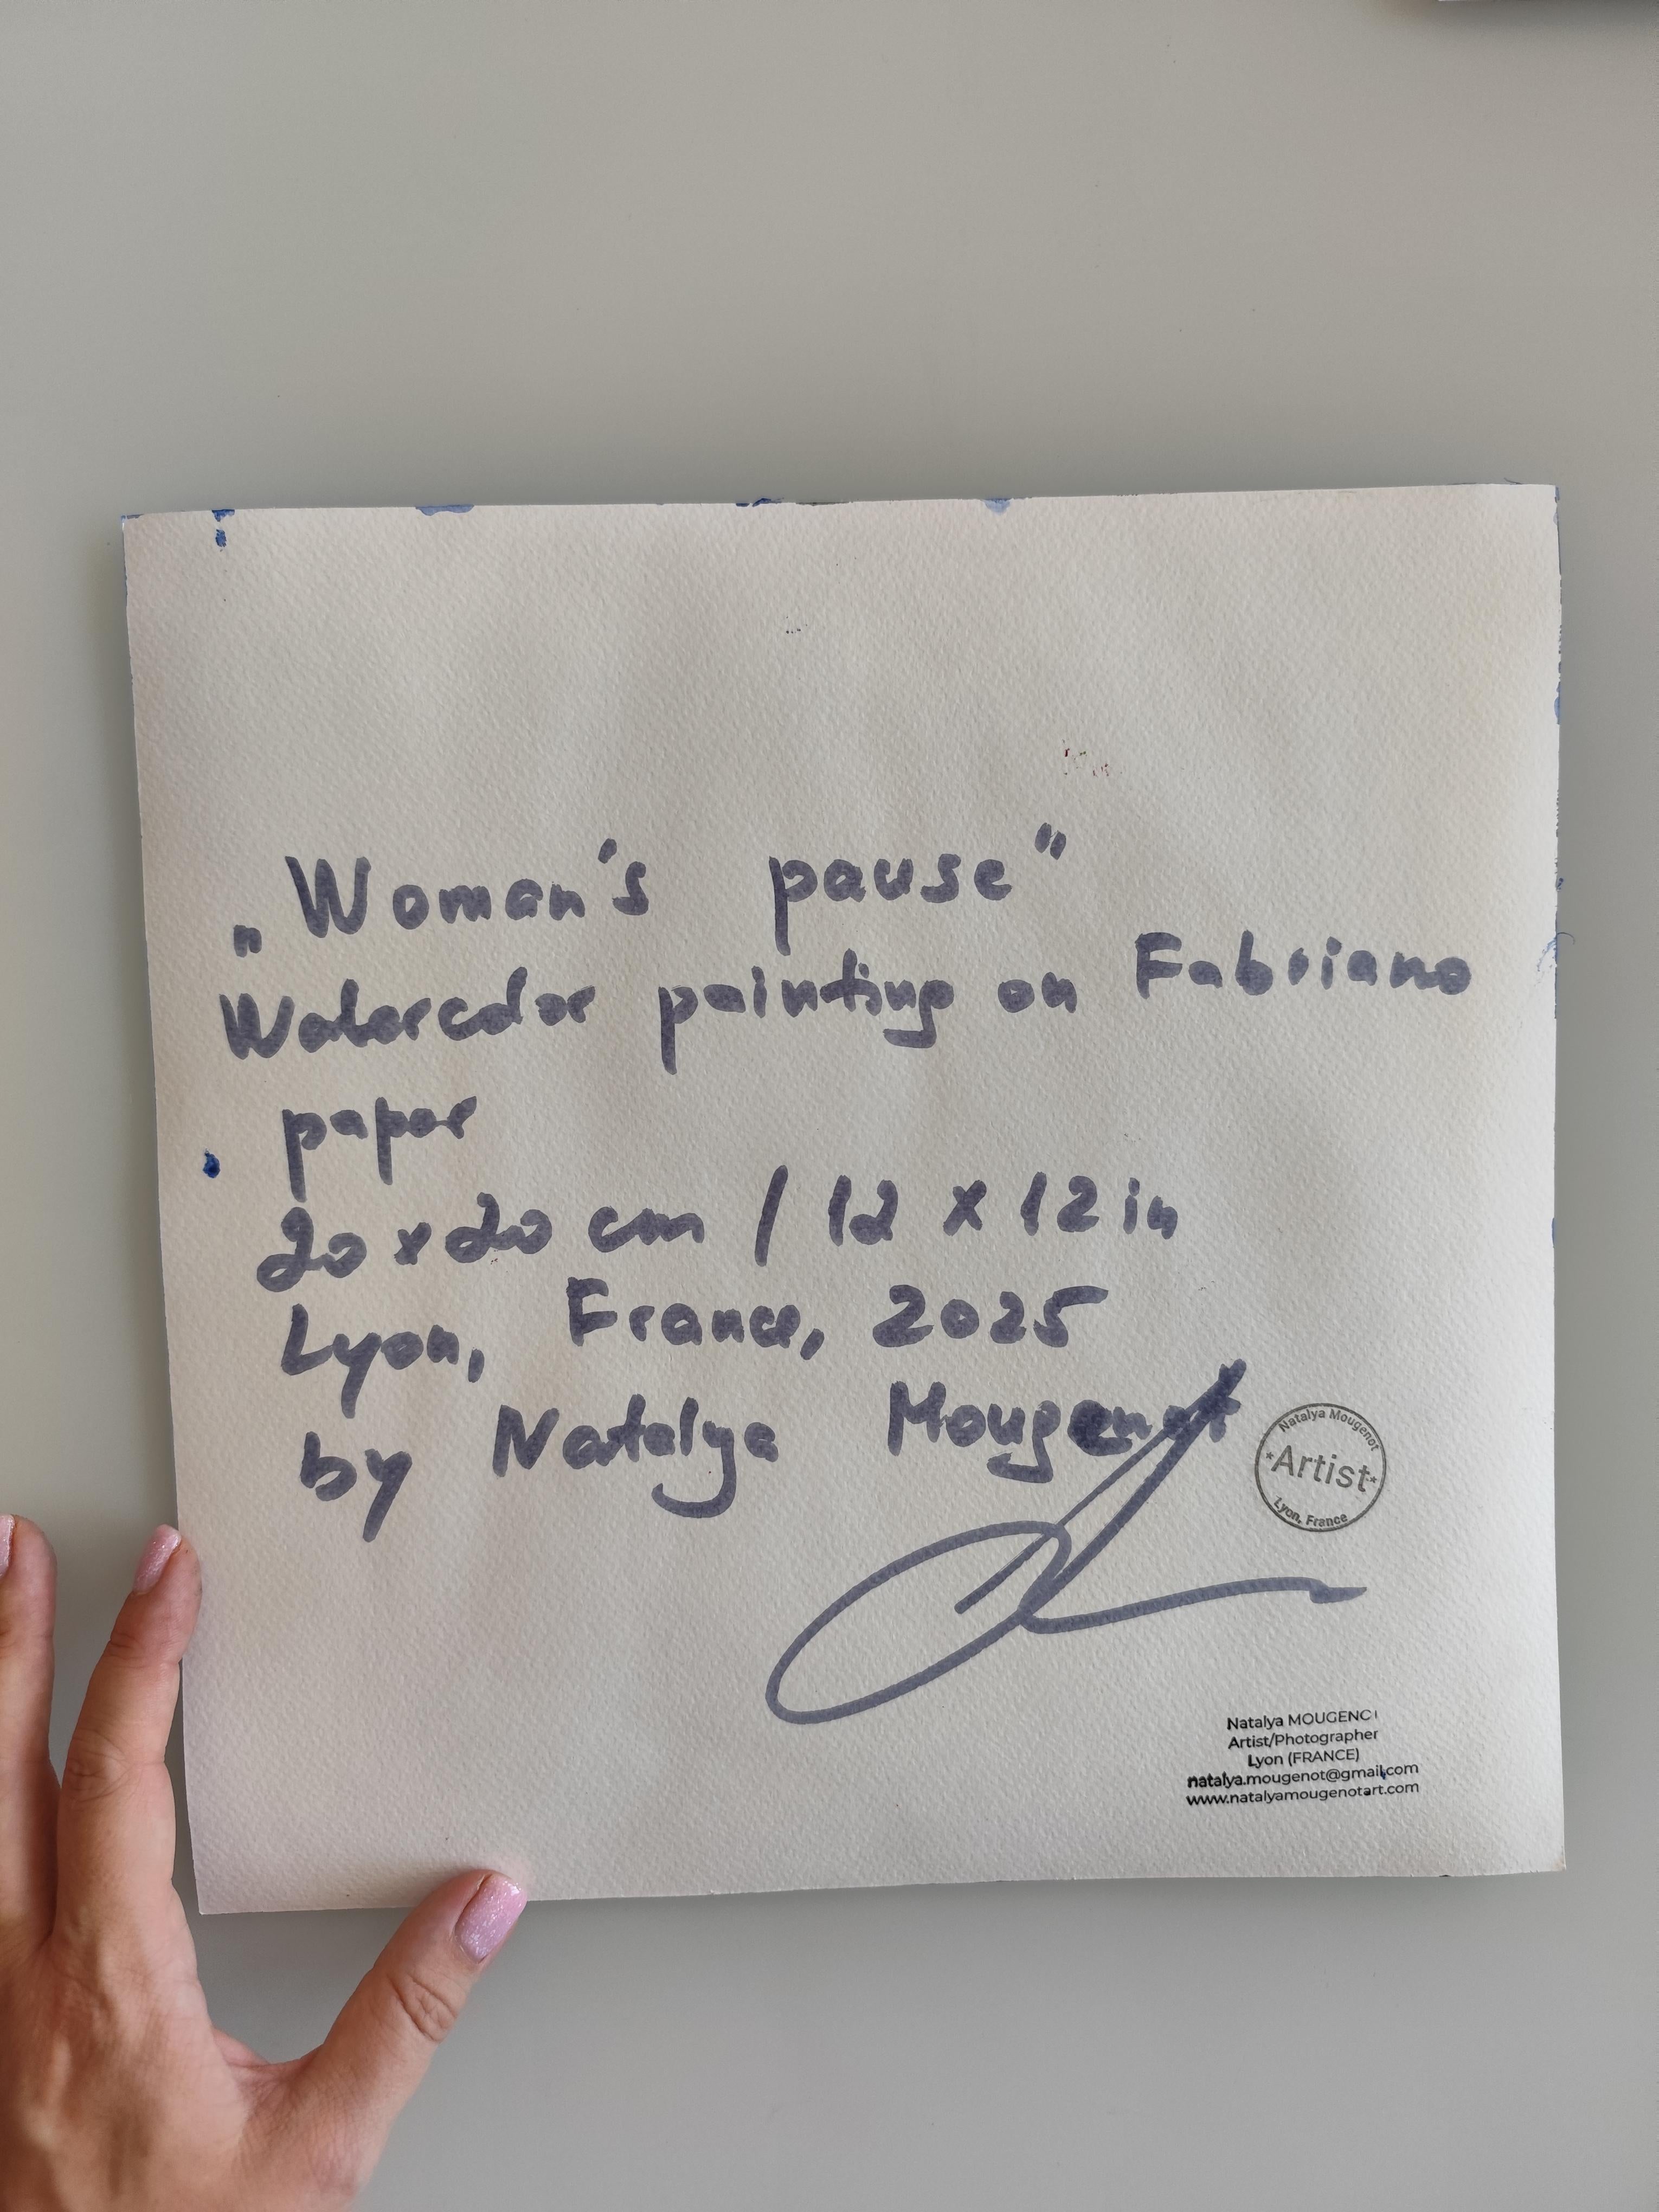 „Woman's pause”
Watercolor painting on Fabriano
paper
20 x 20 cm / 12 x 12 in
Lyon, France, 2025
by Natalya Mougenot
Natalya Mougenot
*Artist*
Lyon, France
Natalya MOUGENOT
Artist/Photographer
Lyon (FRANCE)
natalya.mougenot@gmail.com
www.natalyamougenotart.com